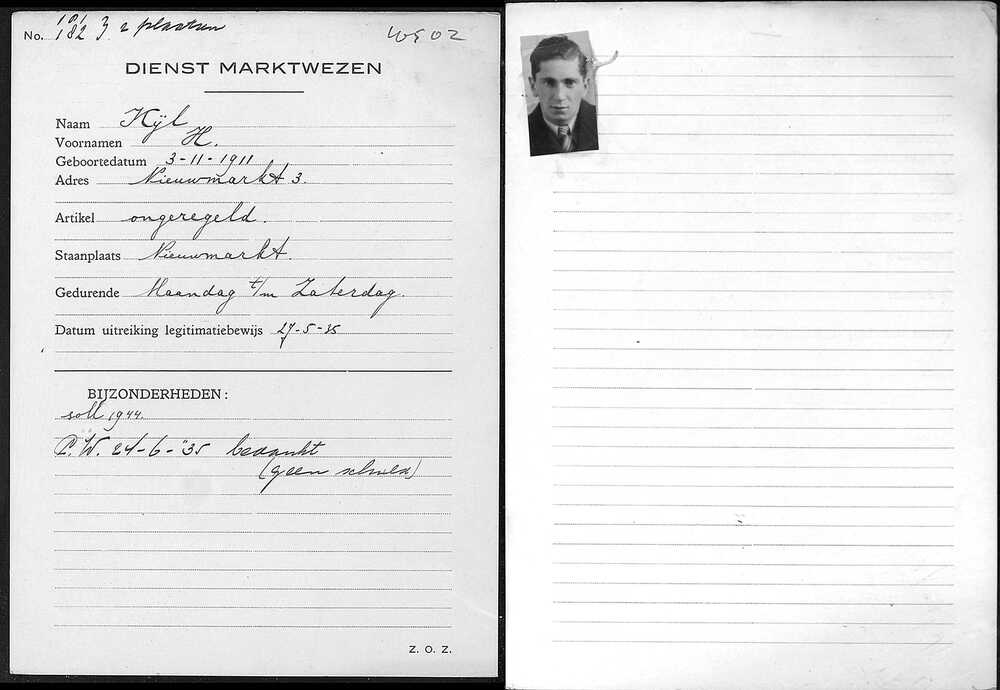 No. 181 182 } 2 plaatsen
W502
DIENST MARKTWEZEN
Naam Kijl
Voornamen H.
Geboortedatum 3-11-1911
Adres Nieuwmarkt 3.
Artikel ongeregeld.
Staanplaats Nieuwmarkt.
Gedurende Maandag t/m Zaterdag.
Datum uitreiking legitimatiebewijs 27-5-35
BIJZONDERHEDEN:
soll 1944.
P.W. 24-6-'35 bedankt
(geen schuld)
Z. O. Z.